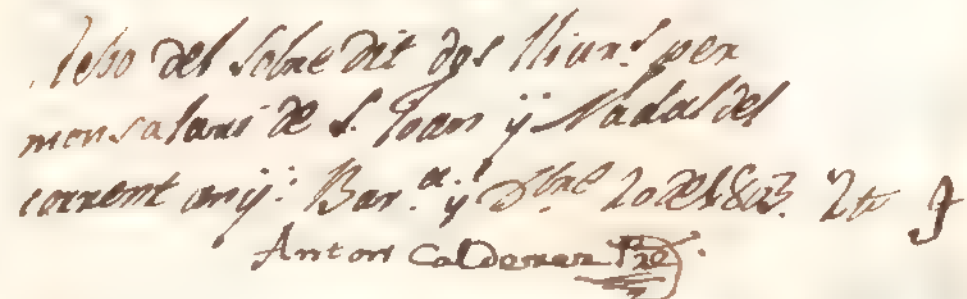 Rebo del sobre dit dos lliurs. per
mon salari de S. Joan ÿ Nadal del
corrent anÿ: Bar.ª y Dbre 20 de 1803. 2 tt
Anton Caldemer Pre